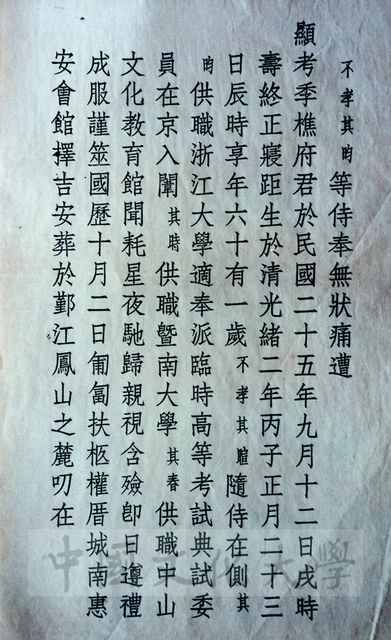 不孝其昀等侍奉無狀痛遭
顯考季樵府君於民國二十五年九月十二日戌時
壽終正寢距生於清光緒二年丙子正月二十三
日辰時享年六十有一歲不孝其暄隨侍在側其
昀供職浙江大學適奉派臨時高等考試典試委
員在京入闈其時供職暨南大學其春供職中山
文化教育館聞耗星夜馳歸親視含殮卽日遵禮
成服謹筮國歷十月二日匍匐扶柩權厝城南惠
安會館擇吉安葬於鄞江鳳山之麓叨在
中國文化大學